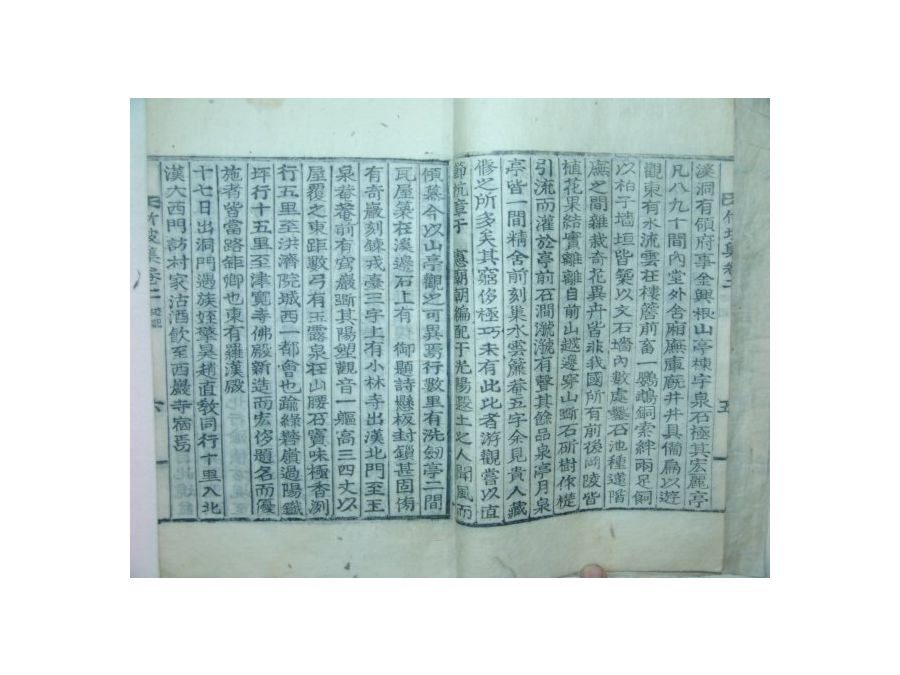 溪洞有領府事金興根山亭棟宇泉石極其宏麗亭
凡八九十間內堂外舍廂廡庫廐井井具備扁以遊
觀東有水流雲在樓簷前畜一鸚鵡銅索絆兩足飼
以柏子墻垣皆築以文石墻內數處鑿石池種蓮階
廡之間雜栽奇花異卉皆非我國所有前後岡陵皆
植花果結實離離自前山越邊穿山斲石斫樹作槎
引流而灌於亭前石澗㶁㶁有聲其餘品泉亭月泉
亭皆一間精舍前刻集水雲簾巷五字余見貴人藏
修之所多矣其窮侈極巧未有此比者游觀嘗以直
節抗章于 憲廟朝編配于光陽遐土之人聞風而
傾慕今以山亭觀之可異焉行數里有洗劍亭二間
瓦屋築在溪邊石上有 御題詩懸板封鎖甚固傍
有奇巖刻鍊戎臺三字上有小林寺出漢北門至玉
泉菴菴前有穹巖斲其陽塑觀音一軀高三四丈以
屋覆之東距數弓有玉露泉在山腰石竇味極香冽
行五里至洪濟院城西一都會也踰綠礬嶺過陽鐵
坪行十五里至津寬寺佛殿新造而宏侈題名而優
施者皆當路鉅卿也東有羅漢殿
十七日出洞門過族姪肇昊趙直敎同行十里入北
漢大西門訪村家沽酒飮至西巖寺宿焉
竹坡集卷二
五
竹坡集卷二 遊記
六